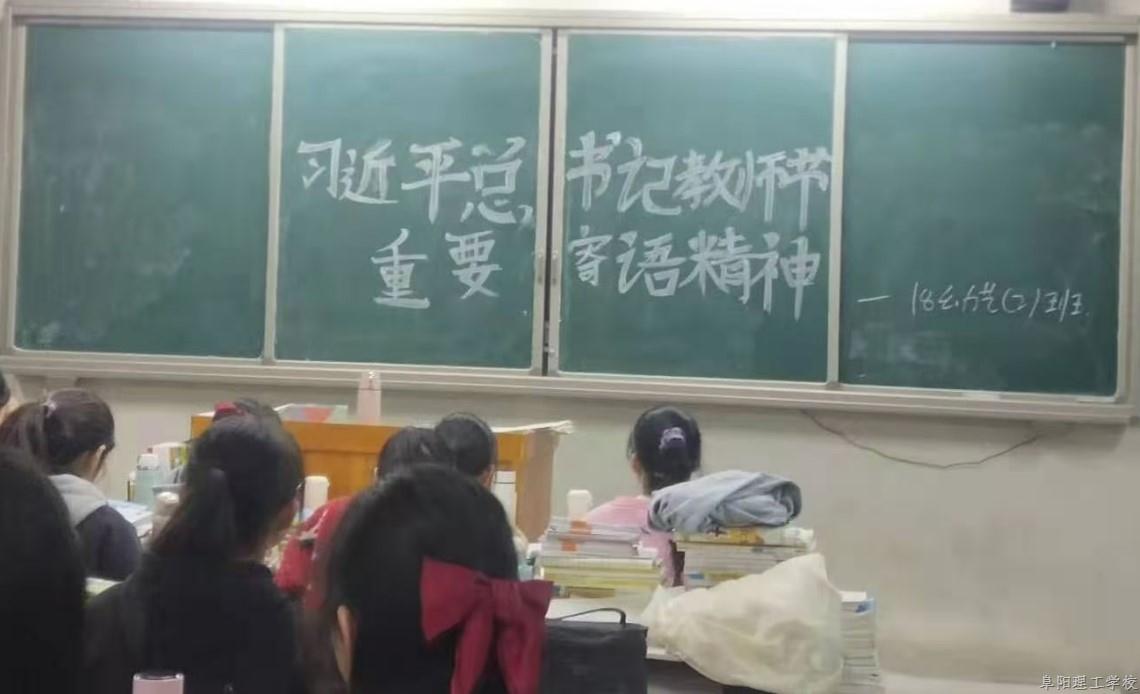 习近平总书记教师节
重要寄语精神
— 18幼师(2)班
阜阳理工学校